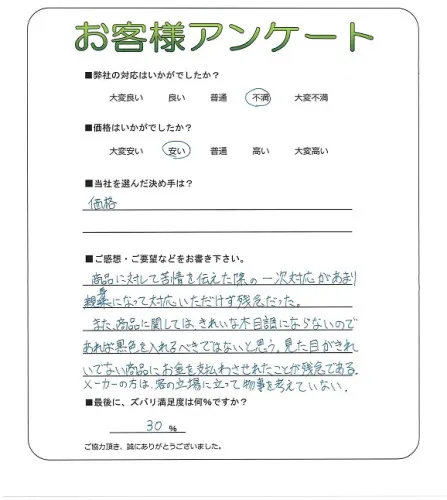 お客様アンケート
■弊社の対応はいかがでしたか？
大変良い 良い 普通 不満 大変不満
■価格はいかがでしたか？
大変安い 安い 普通 高い 大変高い
■当社を選んだ決め手は？
価格
■ご感想・ご要望などをお書き下さい。
商品に対して苦情を伝えた際の一次対応があまり
になって対応いただけず残念だった。
また、商品に関しては、きれいな木目調にならないので
あれば黒色を入れるべきではないと思う。見た目がきれ
いでない商品にお金を支払わさせれたことが残念である。
メーカーの方は、客の立場に立って物事を考えていない。
■最後に、ズバリ満足度は何%ですか？
30 %
ご協力頂き、誠にありがとうございました。